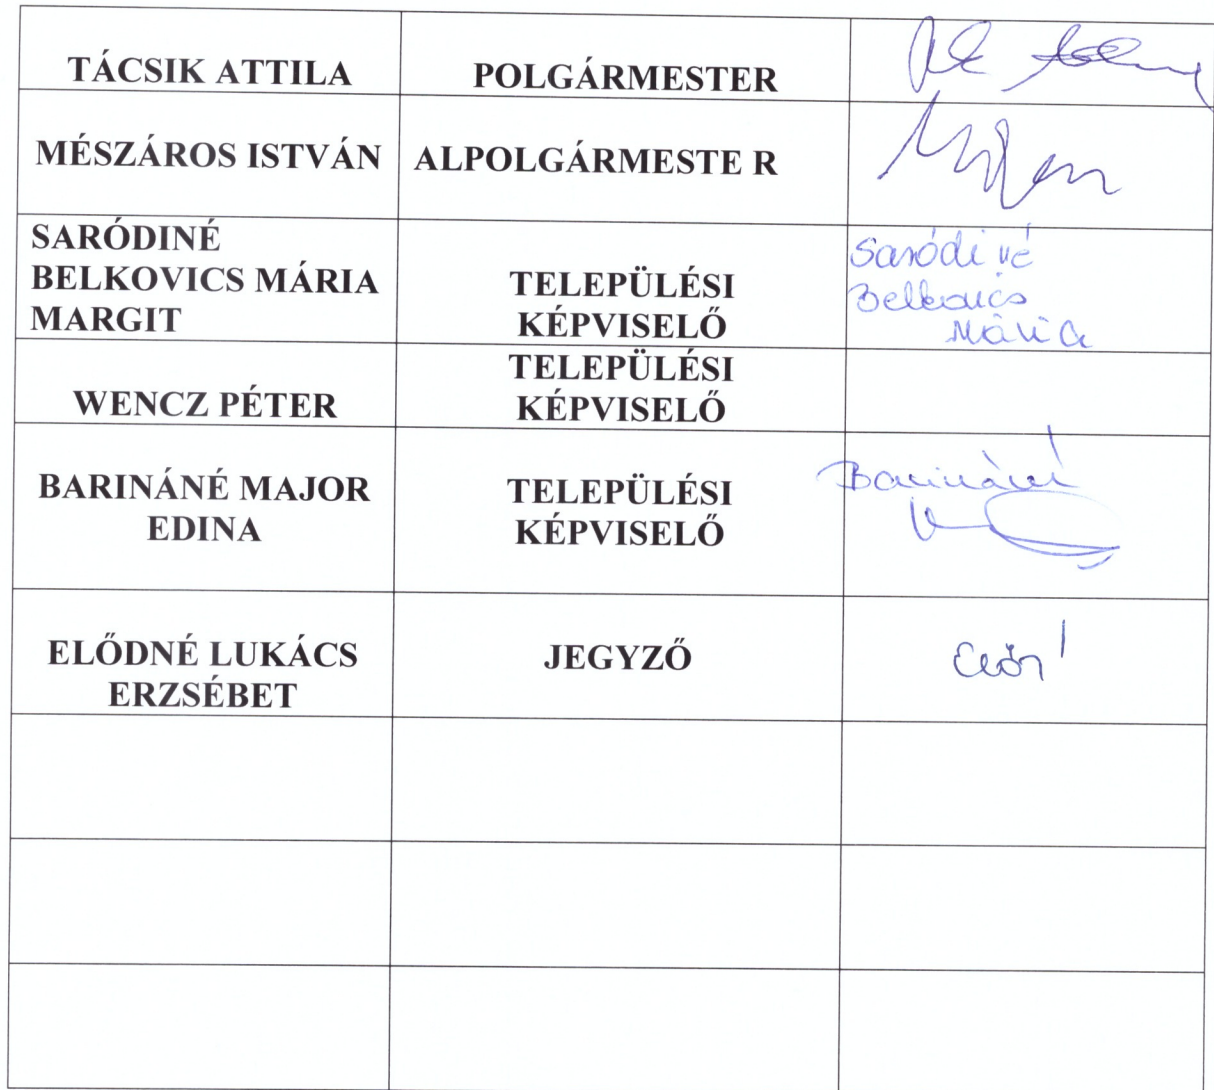 TÁCSIK ATTILA
POLGÁRMESTER
MÉSZÁROS ISTVÁN
ALPOLGÁRMESTE R
SARÓDINÉ
BELKOVICS MÁRIA
MARGIT
TELEPÜLÉSI
KÉPVISELŐ
Saródiné
Belkovics
Mária
WENCZ PÉTER
TELEPÜLÉSI
KÉPVISELŐ
BARINÁNÉ MAJOR
EDINA
TELEPÜLÉSI
KÉPVISELŐ
Barináné
ELŐDNÉ LUKÁCS
ERZSÉBET
JEGYZŐ